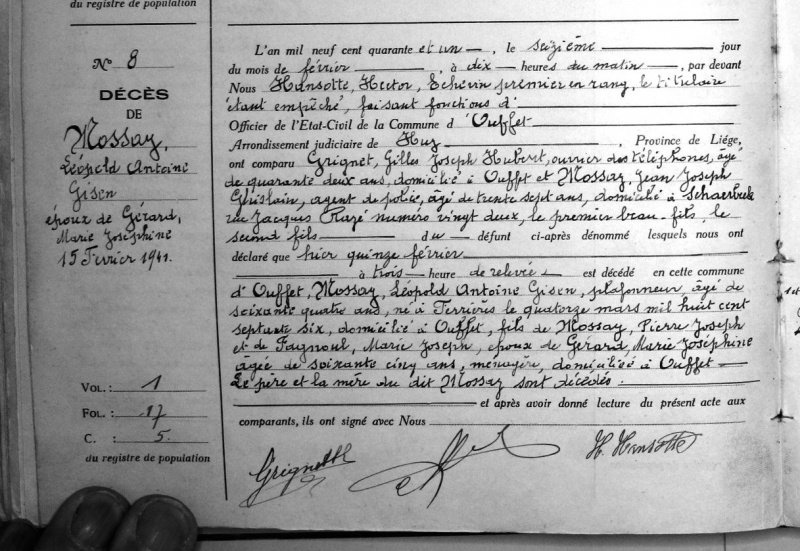 du registre de population
N° 8
DÉCÈS
DE
Mossay,
Léopold Antoine
Gisen
époux de Gérard,
Marie Joséphine
15 Février 1941.
VOL. : 1
FOL. : 17
C. : 5.
du registre de population
L'an mil neuf cent quarante et un, le seizième jour
du mois de février, à dix heures du matin, par devant
Nous Hansotte, Hector, Echevin premier en rang, le titulaire
étant empêché, faisant fonctions d'
Officier de l'Etat-Civil de la Commune d'Ouffet
Arrondissement judiciaire de Huy, Province de Liége,
ont comparu Grignet, Gilles Joseph Hubert, ouvrier des téléphones, âgé
de quarante deux ans, domicilié à Ouffet et Mossay, Jean Joseph
Ghislain, agent de police, âgé de trente sept ans, domicilié à Schaerbeek
rue Jacques numéro vingt deux, le premier beau-fils, le
second fils du défunt ci-après dénommé lesquels nous ont
déclaré que hier quinze février
à trois heure de relevée est décédé en cette commune
d'Ouffet, Mossay, Léopold Antoine Gisen, plafonneur âgé de
soixante quatre ans, né à Ferrières le quatorze mars mil huit cent
septante six, domicilié à Ouffet, fils de Mossay, Pierre Joseph
et de Fagnoul, Marie Joseph, époux de Gérard, Marie Joséphine
âgée de soixante cinq ans, ménagère, domiciliée à Ouffet
Le père et la mère du dit Mossay sont décédés.
et après avoir donné lecture du présent acte aux
comparants, ils ont signé avec Nous
Grignet H. Hansotte